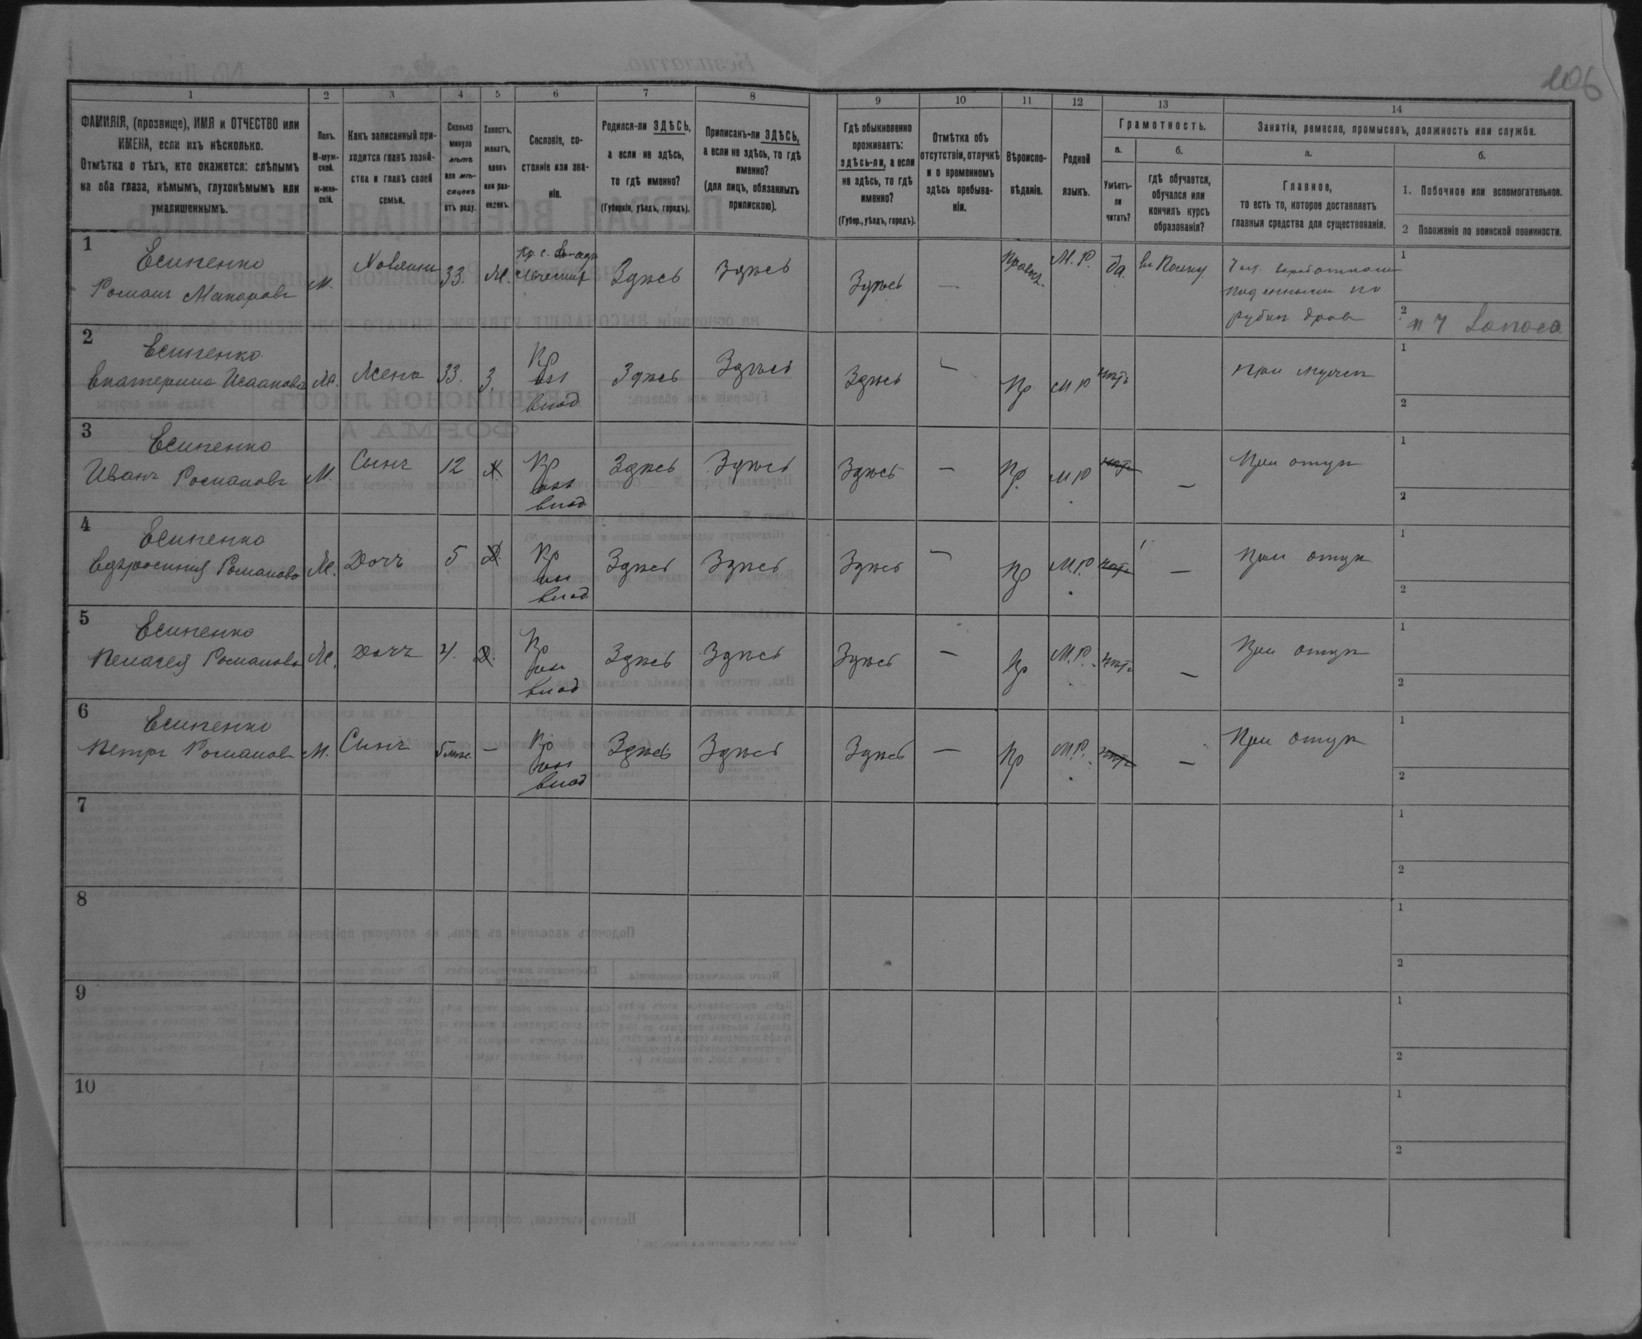 106
1 2 3 4 5 6 7 8 9 10 11 12 13 14
ФАМИЛІЯ, (прозвище), ИМЯ и ОТЧЕСТВО или
ИМЕНА, если ихъ нѣсколько.
Отмѣтка о тѣхъ, кто окажется: слѣпымъ
на оба глаза, нѣмымъ, глухонѣмымъ или
умалишеннымъ.
Полъ.
М-муж-
ской.
Ж-жен-
скій.
Какъ записанный при-
ходится главѣ хозяй-
ства и главѣ своей
семьи.
Сколько
минуло
лѣтъ
или мѣ-
сяцевъ
отъ роду.
Холостъ,
женатъ,
вдовъ
или раз-
веденъ.
Сословіе, со-
стояніе или зва-
ніе.
Родился-ли ЗДѢСЬ,
а если не здѣсь,
то гдѣ именно?
(Губернія, уѣздъ, городъ).
Приписанъ-ли ЗДѢСЬ,
а если не здѣсь, то гдѣ
именно?
(для лицъ, обязанныхъ
припискою).
Гдѣ обыкновенно
проживаетъ:
здѣсь-ли, а если
не здѣсь, то гдѣ
именно?
(Губер., уѣздъ, городъ).
Отмѣтка объ
отсутствіи, отлучкѣ
и о временномъ
здѣсь пребыва-
ніи.
Вѣроиспо-
вѣданіе.
Родной
языкъ.
Грамотность.
а.
Умѣетъ-
ли
читать?
б.
гдѣ обучается,
обучался или
кончилъ курсъ
образованія?
Занятія, ремесло, промыселъ, должность или служба.
а.
Главное,
то есть то, которое доставляетъ
главныя средства для существованія.
б.
1. Побочное или вспомогательное.
2 Положеніе по воинской повинности.
1
Есипенко
Романъ Макаровъ М. Хозяинъ 33. Ж. Здѣсь Здѣсь Здѣсь — Правос. М. Р. да. въ Полку
рубки дровъ
1
2
2
Есипенко
Екатерина Исаакова Ж. Жена 33. З. Кр Здѣсь Здѣсь Здѣсь — Пр М Р нѣтъ При мужѣ
1
2
3
Есипенко
Иванъ Романовъ М. Сынъ 12 Х. Кр Здѣсь Здѣсь Здѣсь — Пр. М Р нѣтъ — При отцѣ
1
2
4
Есипенко
Евфросинія Романова Ж. Дочь 5 Д. Кр Здѣсь Здѣсь Здѣсь — Пр М.Р. нѣтъ — При отцѣ
1
2
5
Есипенко
Пелагея Романова Ж. Дочь Д. Кр Здѣсь Здѣсь Здѣсь — Пр М.Р. нѣтъ — При отцѣ
1
2
6
Есипенко
Петръ Романовъ М. Сынъ 5 мѣс. — Кр Здѣсь Здѣсь Здѣсь — Пр М.Р. нѣтъ — При отцѣ
1
2
7
1
2
8
1
2
9
1
2
10
1
2